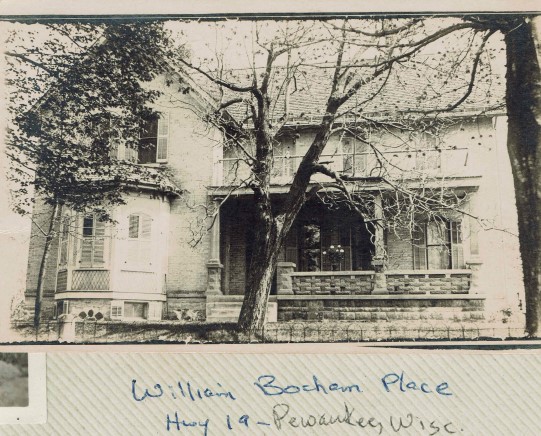 William Bocham Place
Hwy 19 - Pewaukee, Wisc.